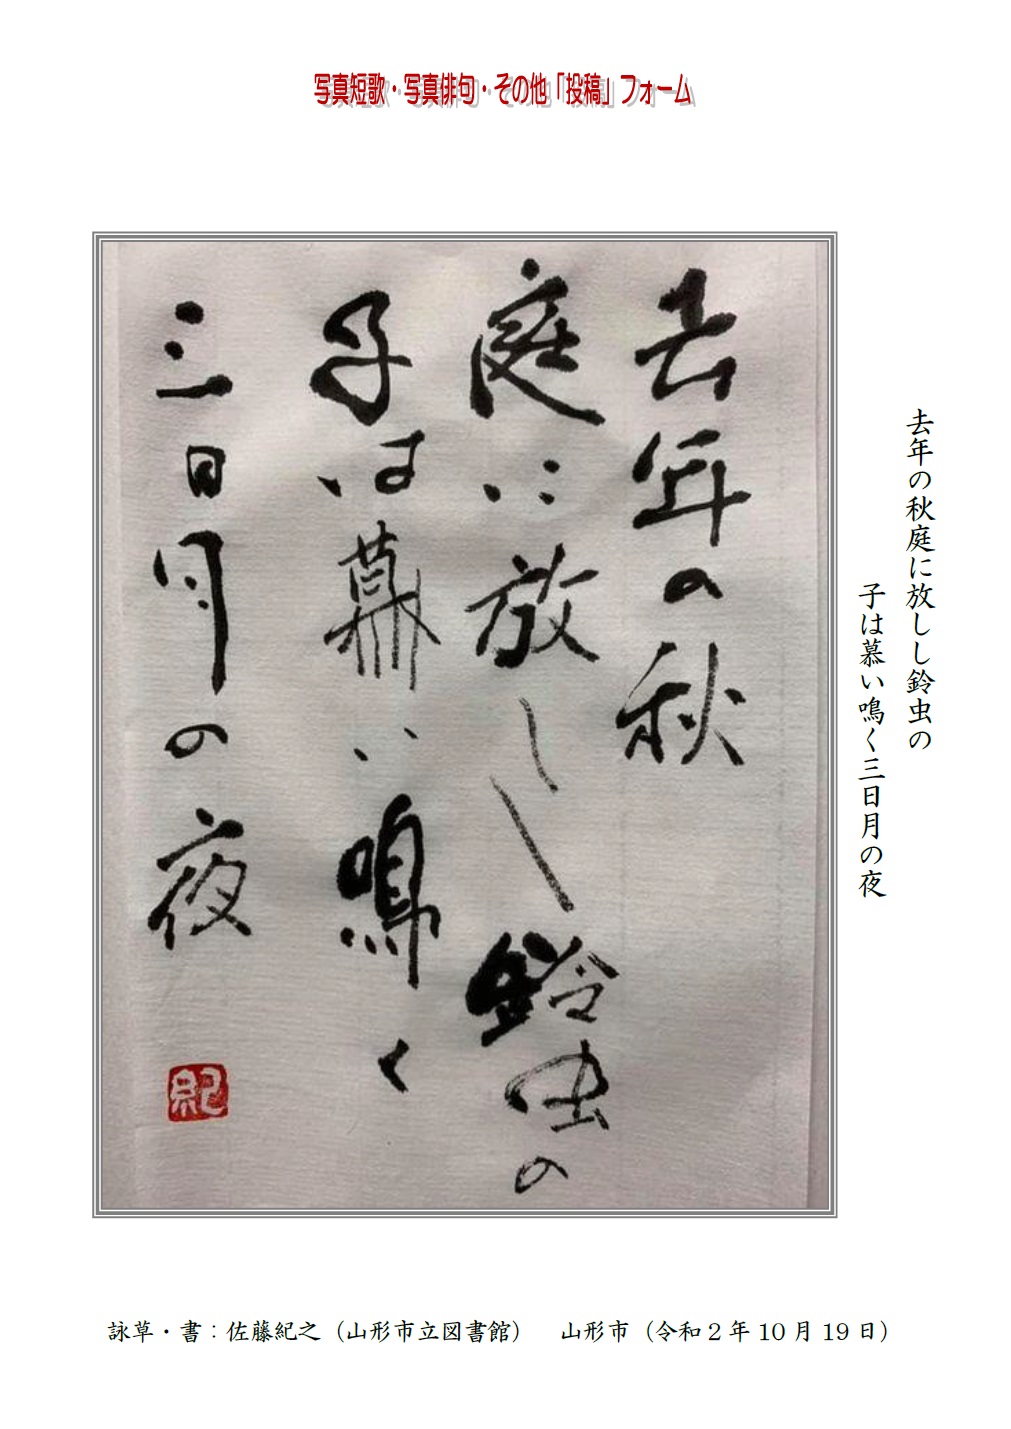 写真短歌・写真俳句・その他「投稿」フォーム
去年の秋庭に放しし鈴虫の
子は慕い鳴く三日月の夜
去年の秋
庭に放しし鈴虫の
子は慕い鳴く
三日月の夜
紀
詠草・書：佐藤紀之（山形市立図書館）　山形市（令和２年10月19日）